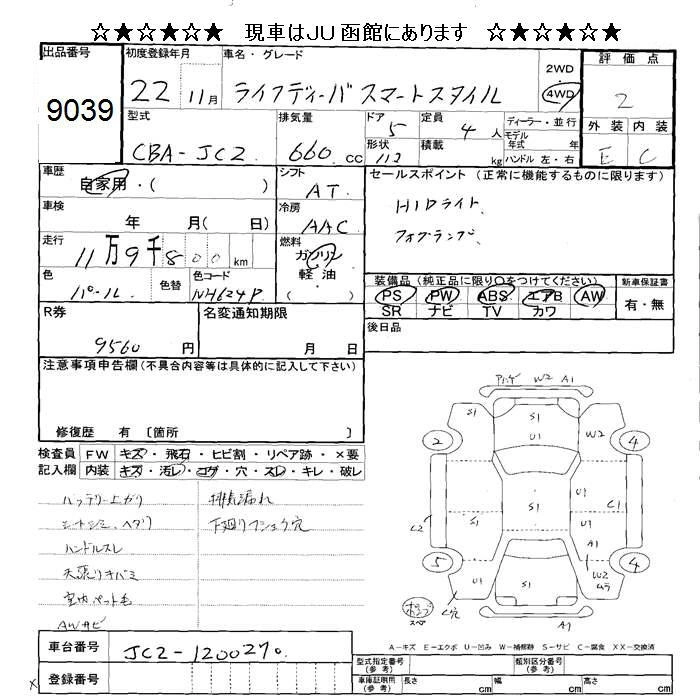 ☆★☆★☆★ 現車はJU函館にあります ☆★☆★☆★
出品番号 9039
初度登録年月 22 11月
車名・グレード ライフディーバ スマートスタイル
2WD 4WD
評価点 2
外装 内装
E C
型式 CBA-JC2
排気量 660 cc
ドア 5
形状 112
定員 4 人
積載 kg
ディーラー・並行
モデル年式 年式
ハンドル 左・右
車歴 自家用・( )
シフト AT
車検 年 月 ( 日)
冷房 AAC
走行 11万9千800 km
燃料 ガソリン 軽油 ( )
色 パール 色替
色コード NH624P
R券 9560 円
名変通知期限 月 日
セールスポイント (正常に機能するものに限ります)
HIDライト
フォグランプ
装備品 (純正品に限り○をつけてください)
PS PW ABS エアB AW
SR ナビ TV カワ
新車保証書 有・無
後日品
注意事項申告欄 (不具合内容等は具体的に記入して下さい)
修復歴 有 〔箇所 〕
検査員記入欄
FW キズ・飛石・ヒビ割・リペア跡・×要
内装 キズ・汚レ・コゲ・穴・スレ・キレ・破レ
バッテリー上がり 排気漏れ
シートシミ、ヘタリ 下廻りフショク穴
ハンドルスレ
天張りキバミ
室内ペット毛
AWサビ
W2 A1
S1 S1 U1 W2
2 4
L2 S1 S1 U1 C1
A1
5 4
U1 S1 W2 ムラ
A1
スペア
A-キズ E-エクボ U-凹み W-補修跡 S-サビ C-腐食 XX-交換済
車台番号 JC2-1200270
登録番号
型式指定番号 (参考)
類別区分番号 (参考)
車庫証明用 (参考) 長さ cm 幅 cm 高さ cm